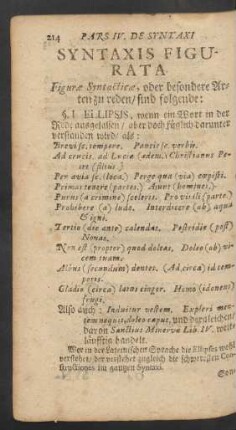 214 PARS IV. DE SYNTAXI
SYNTAXIS FIGU-
RATA
Figuræ Syntacticæ, oder besondere Ar-
ten zu reden/ sind folgende:
§. I ELLIPSIS, wenn ein Wort in der
Rede ausgelassen/ aber doch füglich darunter
verstanden wird/ als:
Brevi sc. tempore. Paucis sc. verbis.
Ad crucis. ad Luciæ (ædem.) Christianus Pe-
tri (filius.)
Per avia sc. (loca.) Perge qua (via) cœpisti.
Primas tenere (partes.) Ajunt (homines.)
Purus (a crimine) sceleris. Pro virili (parte)
Prohibere (a) ludo. Interdicere (ab) aqua
& igni.
Tertio (die ante) calendas. Postridie (post)
Nonas.
Non est (propter) quod doleas. Doleo (ob) vi-
cem tuam.
Albus (secundum) dentes. (Ad, circa) id tem-
poris.
Gladio (circa) latus cingor. Homo (idoneus)
frugi.
Also auch: Induitur vestem. Expleri men-
tem nequit, dolor caput, und dergleichen/
davon Sanctius Minerva Lib. IV. weit-
läufftig handelt.
Wer in der Lateinischen Sprache die Ellipses wohl
verstehet/ der verstehet zugleich die schwersten Con-
structiones im gantzen Syntaxi.